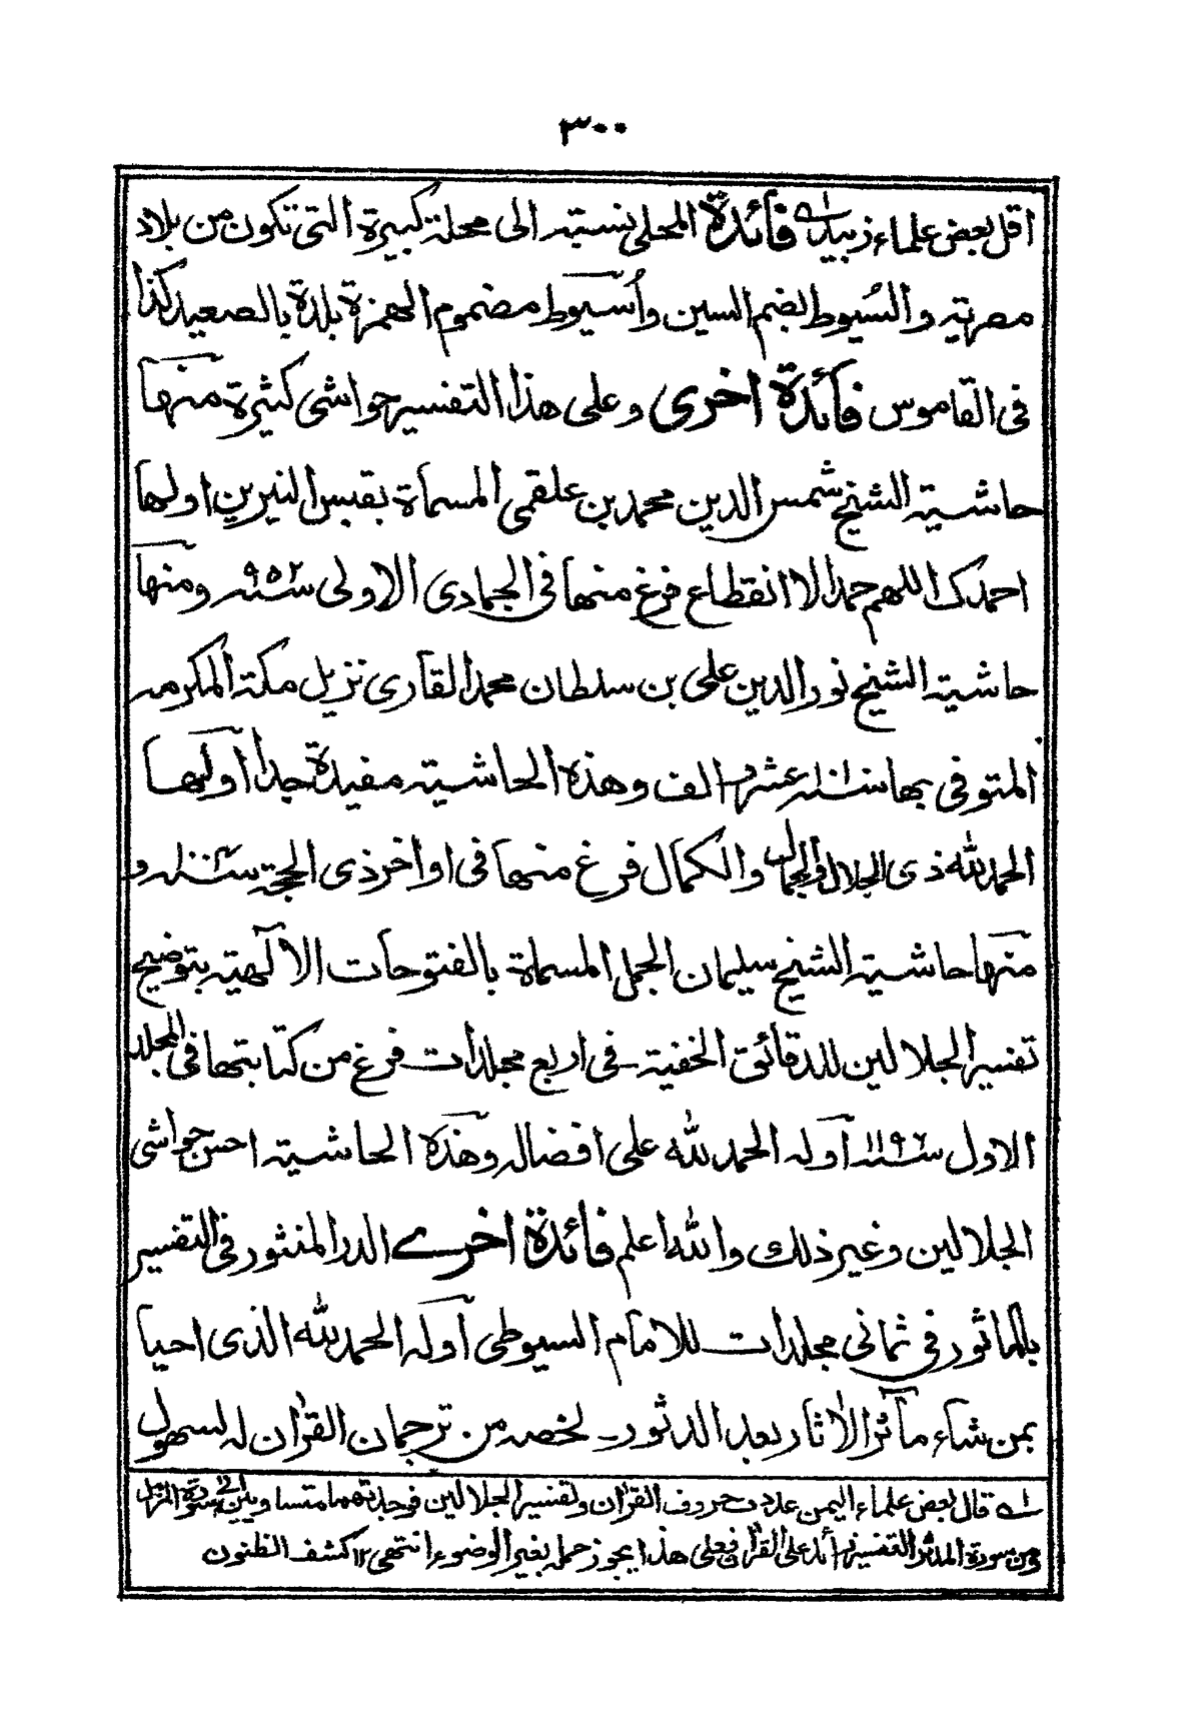 ٣٠٠
اقل بعض علماء زبيد له فائدة المحلى نسبته الى محلة كبيرة التى تكون من بلاد
مصريته والسُيوط لضم السين واُسيوط مضموم الهمزة بلدة بالصعيد كذا
فى القاموس فائدة اخرى وعلى هذا التفسير حواشى كثيرة منها
حاشيته الشيخ شمس الدين محمد بن علقمى المسماة بقبس النيرين اولها
احمدك اللهم حمدا لا انقطاع فرغ منها فى الجمادى الاولى سنه ٩٥٢ ومنها
حاشيته الشيخ نور الدين على بن سلطان محمد القارى نزيل مكة المكرمه
المتوفى بها سنه عشر و الف وهذه الحاشيته مفيدة جدا اولها
الحمد لله ذى الجلال والجمال والكمال فرغ منها فى اواخر ذى الحجة سنه و
منها حاشيته الشيخ سليمان الجمل المسماة بالفتوحات الالهيته بتوضيح
تفسير الجلالين للدقائق الخفية فى اربع مجلدات فرغ من كتابتها فى المجلد
الاول سنه ١١٩٦ اوله الحمد لله على افضاله وهذه الحاشيته احسن حواشى
الجلالين وغير ذلك والله اعلم فائدة اخرے الدر المنثور فى التفسير
بالماثور فى ثمانى مجلدات للامام السيوطى اوله الحمد لله الذى احيا
بمن شاء مآثر الاثار بعد الدثور لخصه من ترجمان القرآن له لسهول
له قال بعض علماء اليمن عددت حروف القرآن وتفسير الجلالين فوجدتهما متساويين الى سورة المزمل
ومن سورة المدثر التفسير زائد على القرآن فعلى هذا يجوز حمله بغير الوضوء انتهى ١٢ كشف الظنون